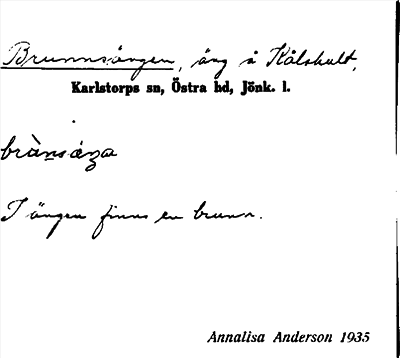 Brunnsängen, äng å Kålshult,
Karlstorps sn, Östra hd, Jönk. l.
I ängen finns en brunn.
Annalisa Anderson 1935